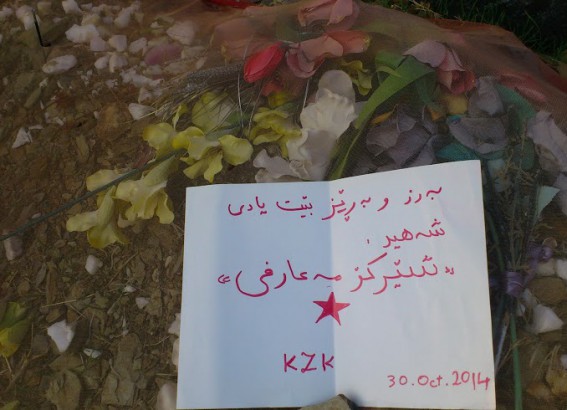 بەرز و بەڕێز بێت یادی
شەهید،
« شێرکۆ مەعارفی »
KZK
30.Oct.2014